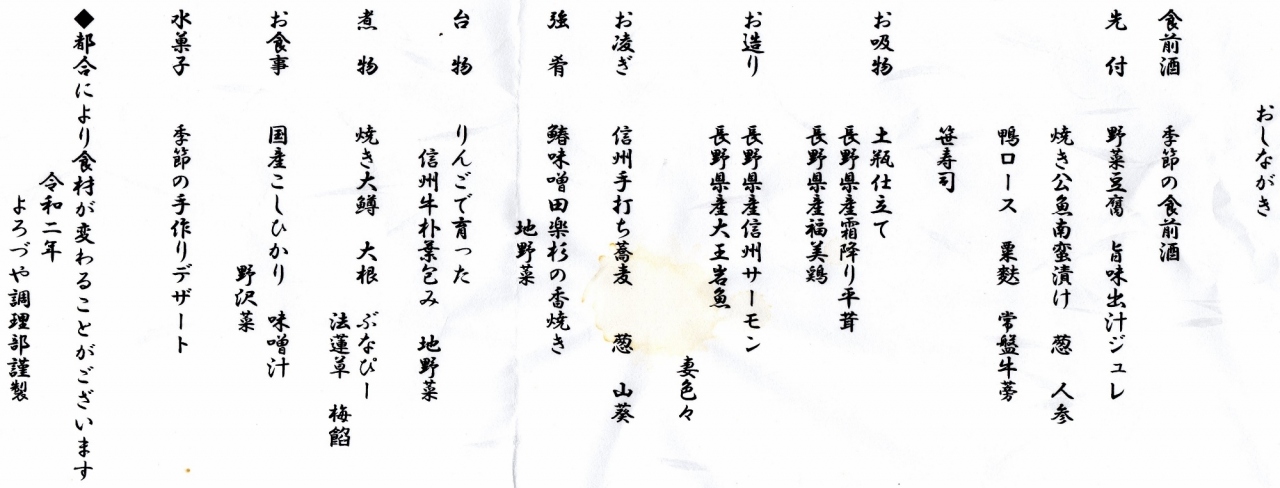 おしながき
食前酒　季節の食前酒
先　付　野菜豆腐　旨味出汁ジュレ
焼き公魚南蛮漬け　葱　人参
鴨ロース　粟麩　常盤牛蒡
笹寿司
お吸物　土瓶仕立て
長野県産霜降り平茸
長野県産福美鶏
お造り　長野県産信州サーモン
長野県産大王岩魚
妻色々
お凌ぎ　信州手打ち蕎麦　葱　山葵
強　肴　鰆味噌田楽杉の香焼き
地野菜
台　物　りんごで育った
信州牛朴葉包み　地野菜
煮　物　焼き大鱒　大根　ぶなぴー
法蓮草　梅餡
お食事　国産こしひかり　味噌汁
野沢菜
水菓子　季節の手作りデザート
◆都合により食材が変わることがございます
令和二年
よろづや調理部謹製